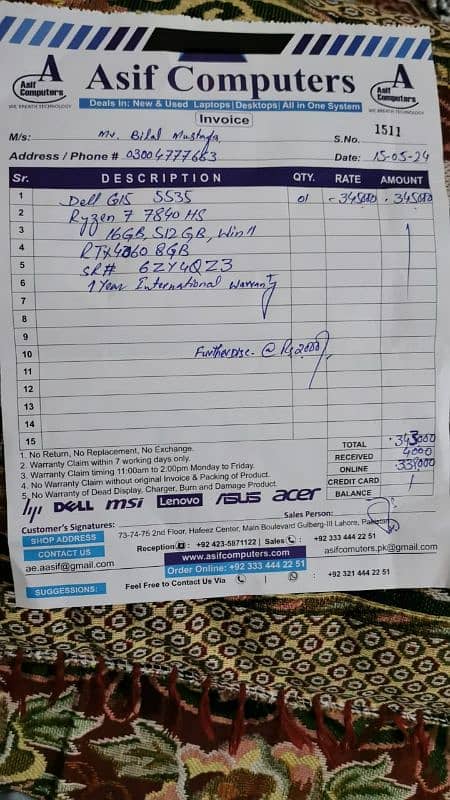 A
Asif
Computers
WE BREATH TECHNOLOGY
Asif Computers
A
Asif
Computers
WE BREATH TECHNOLOGY
Deals In: New & Used Laptops|Desktops|All in One System
Invoice
M/s: Mr. Bilal Mustafa
S.No. 1511
Address / Phone # 03004777663
Date: 15-05-24
Sr. DESCRIPTION QTY. RATE AMOUNT
1 Dell G15 5535 01 345000 345000
2 Ryzen 7 7840 HS
3 16GB, 512GB, Win11
4 RTX4060 8GB
5 SR# 6ZY4QZ3
6 1 Year International Warranty
7
8
9
10 Further Disc. @ Rs 2000/
11
12
13
14
15
TOTAL 343000
RECEIVED 4000
ONLINE 339000
CREDIT CARD
BALANCE
1. No Return, No Replacement, No Exchange.
2. Warranty Claim within 7 working days only.
3. Warranty Claim timing 11:00am to 2:00pm Monday to Friday.
4. No Warranty Claim without original Invoice & Packing of Product.
5. No Warranty of Dead Display, Charger, Burn and Damage Product.
hp DELL msi Lenovo ASUS acer
Sales Person:
Customer's Signatures:
SHOP ADDRESS 73-74-75 2nd Floor, Hafeez Center, Main Boulevard Gulberg-III Lahore, Pakistan
CONTACT US Reception : +92 423-5871122 | Sales : +92 333 444 22 51
ae.aasif@gmail.com www.asifcomputers.com asifcomuters.pk@gmail.com
Order Online: +92 333 444 22 51
SUGGESTIONS: Feel Free to Contact Us Via | : +92 321 444 22 51